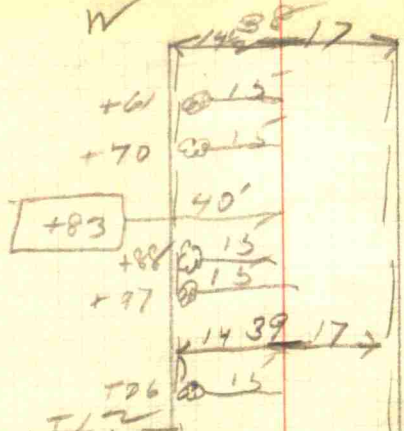 W
38
14 17
+61 15'
+70 15'
+83 40'
+88 15'
+97 15'
14 39 17
+06 15'